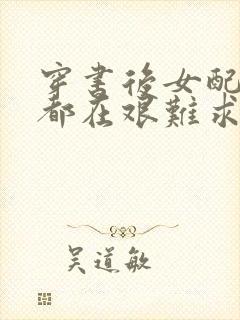 穿书后女配
都在艰难求
吴道敏